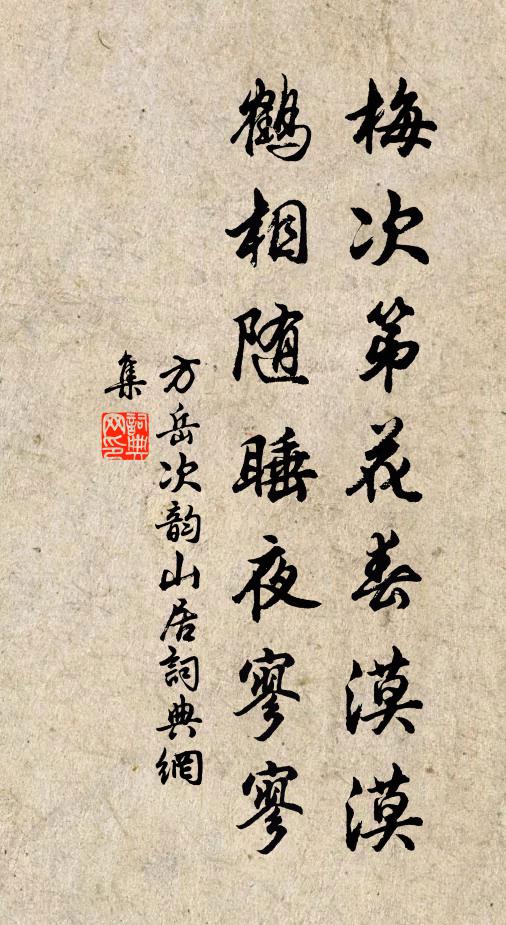 梅次第花春漠漠
鹤相随睡夜寥寥
方岳次韵山居詞典網
集
詞典网印